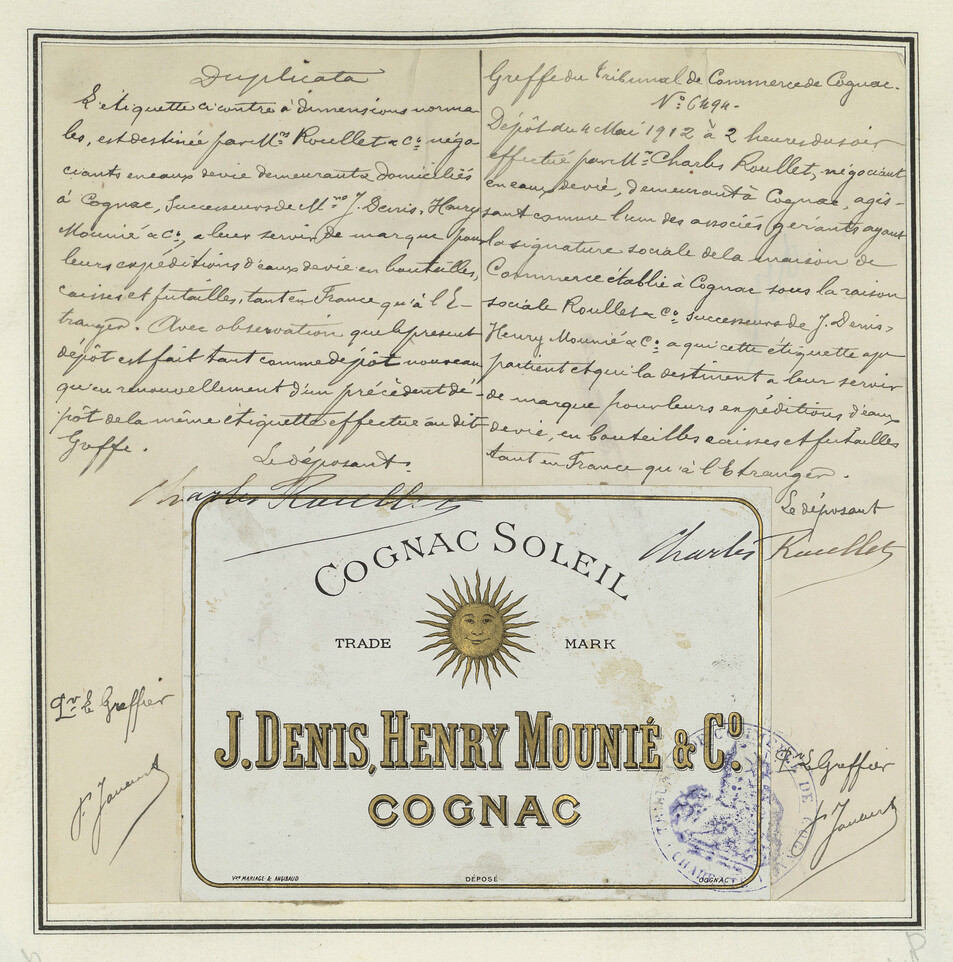 Duplicata
L'étiquette ci contre à dimensions norma-
les, est destinée par Mrs Roullet & Co négo-
ciants en eaux de vie demeurant & domiciliés
à Cognac, Successeurs de Mrs J. Denis, Henry
Mounié & Co, a leur servir de marque pour
leurs expéditions d'eaux de vie en bouteilles,
caisses et futailles, tant en France qu'à l'E-
tranger. Avec observation que le présent
dépôt est fait tant comme dépôt nouveau
qu'en renouvellement d'un précédent dé-
pôt de la même étiquette effectué au dit
Greffe.
Le déposant.
Charles Roullet
Greffe du Tribunal de Commerce de Cognac.
No 6494.
Dépôt du 4 Mai 1912 à 2 heures du soir
effectué par Mr Charles Roullet, négociant
en eaux de vie, demeurant à Cognac, agis-
sant comme l'un des associés gérants ayant
la signature sociale de la maison de
Commerce établie à Cognac sous la raison
sociale Roullet & Co Successeurs de J. Denis,
Henry Mounié & Co a qui cette étiquette ap-
partient et qui la destinent a leur servir
de marque pour leurs expéditions d'eaux
de vie, en bouteilles caisses et futailles
tant en France qu'à l'Etranger.
Le déposant
Charles Roullet
COGNAC SOLEIL
TRADE MARK
J. DENIS, HENRY MOUNIÉ & Co.
COGNAC
Vve MARIAGE & ANGIBAUD
DÉPOSÉ
COGNAC
Pr Le Greffier
Pr Le Greffier